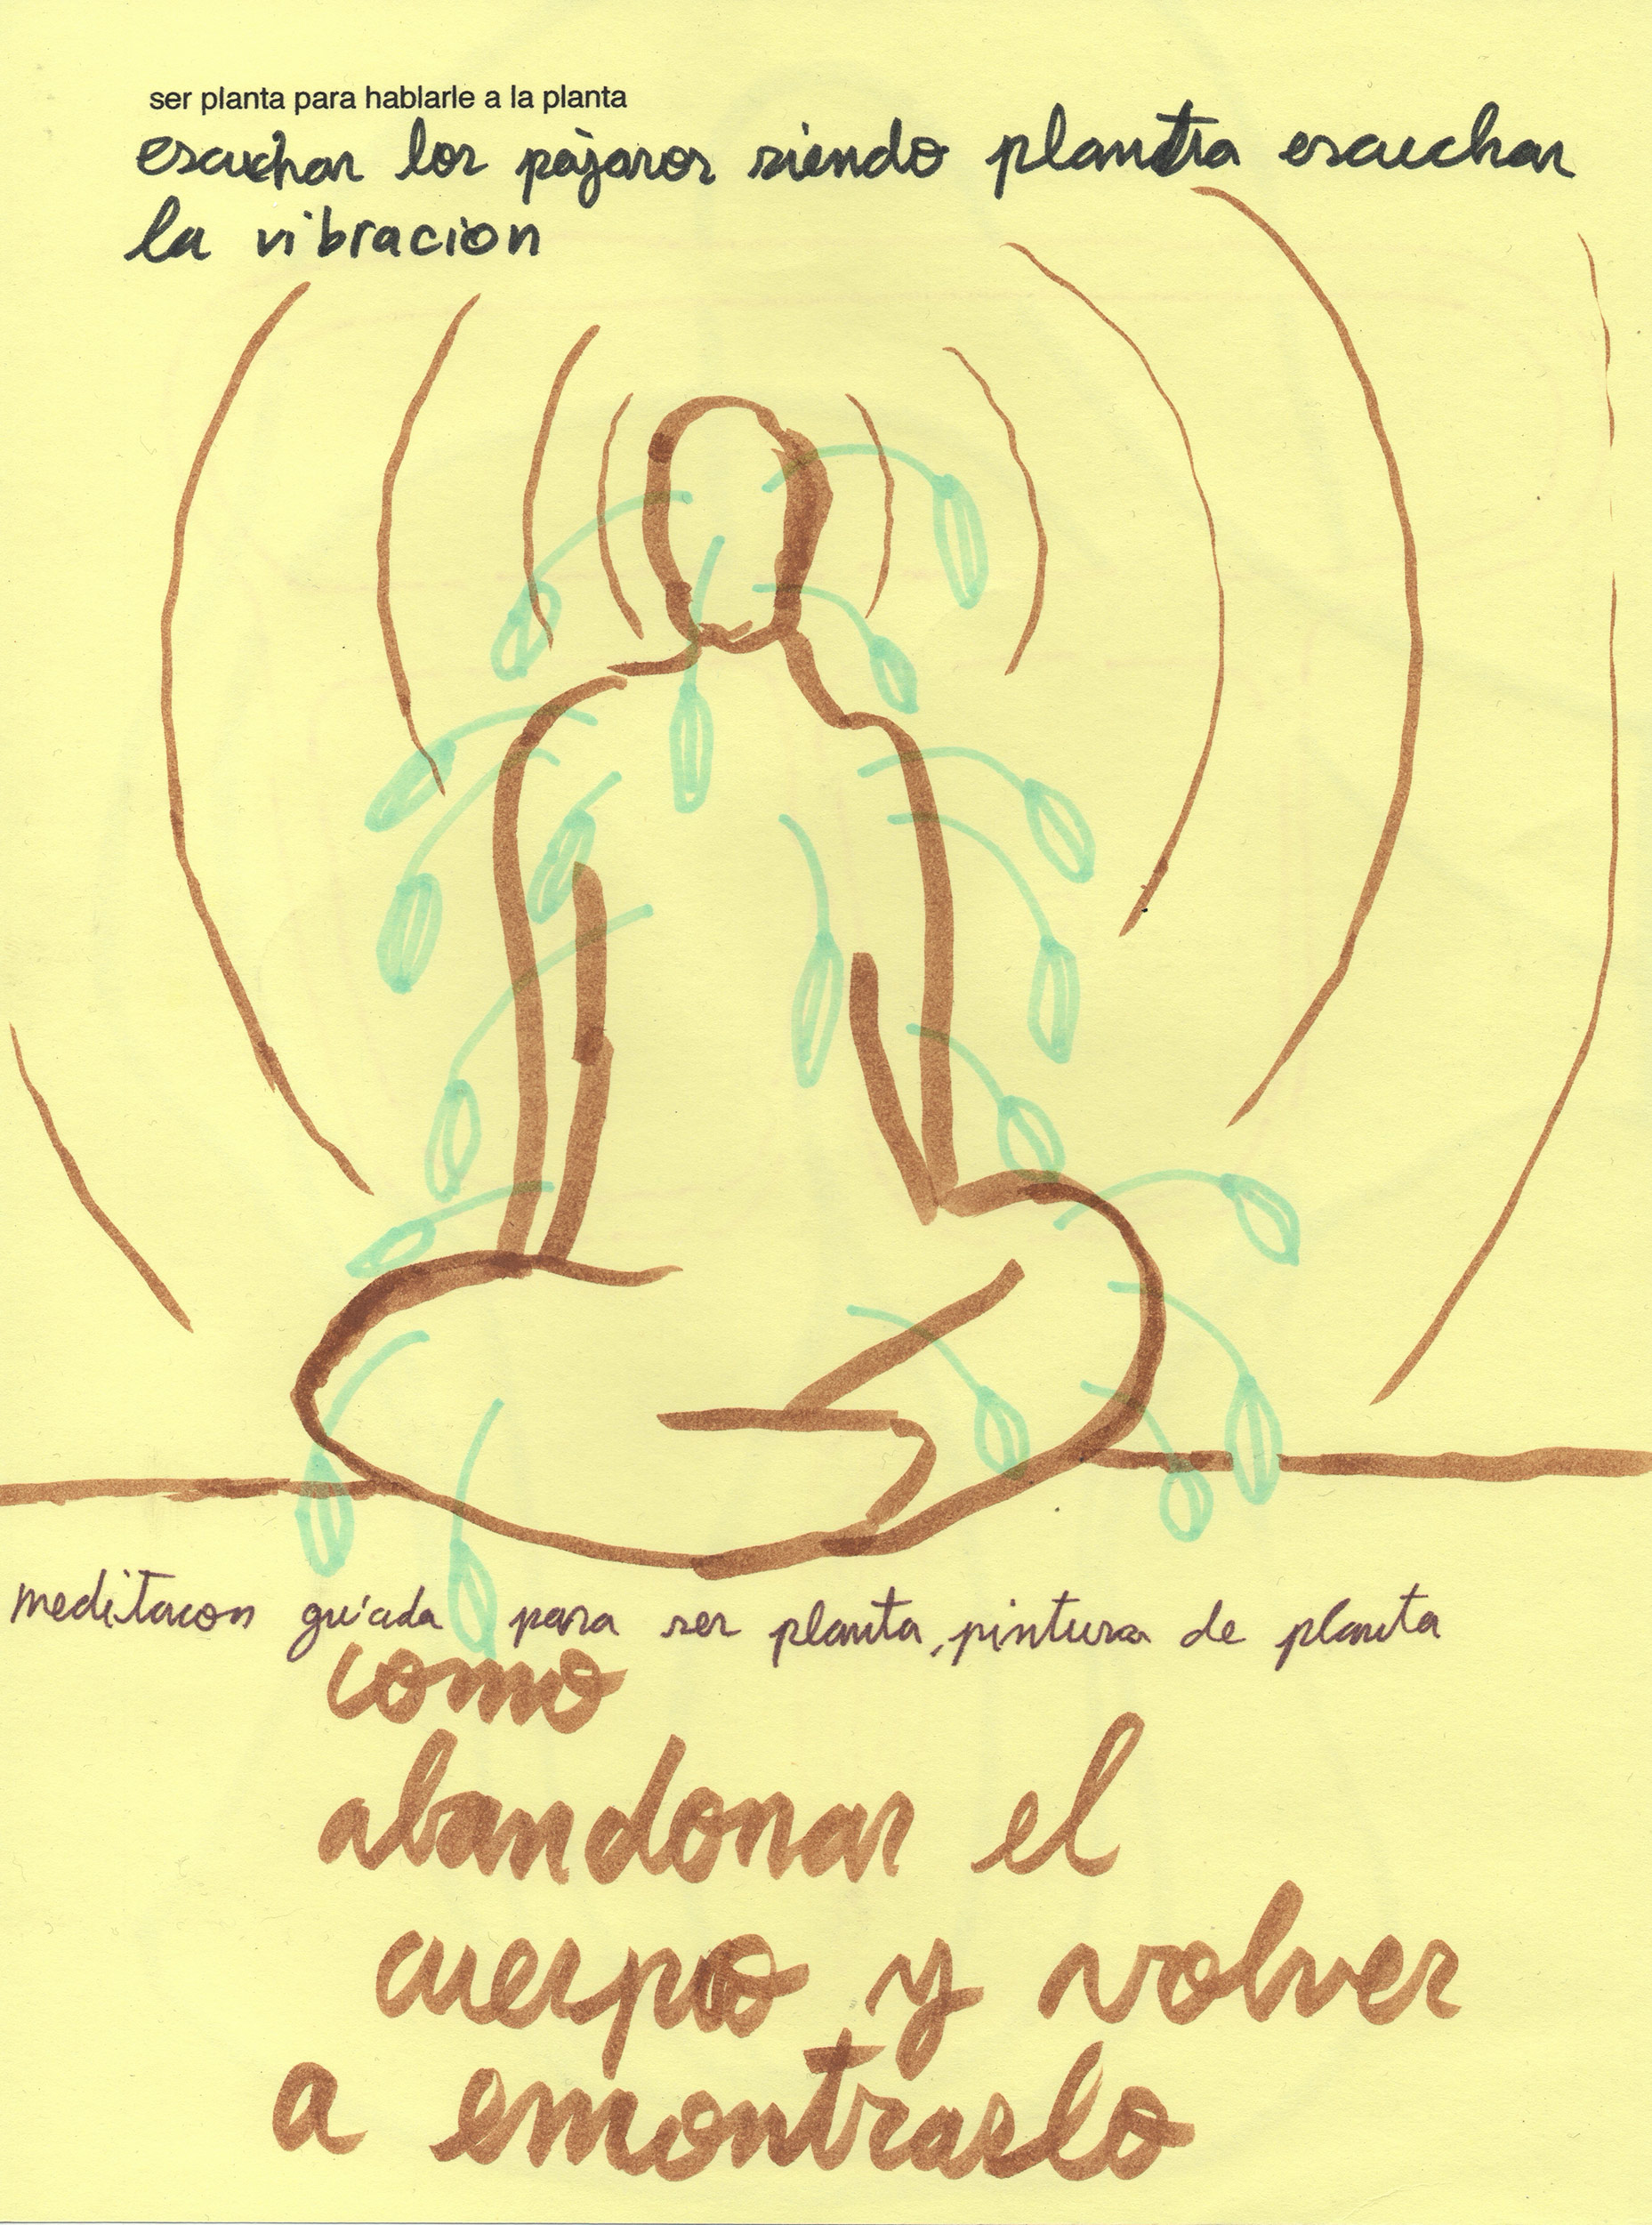 ser planta para hablarle a la planta
escuchar los pàjaros siendo planta escuchar
la vibracion
meditacon guiada para ser planta, pintura de planta
como
abandonar el
cuerpo y volver
a encontrarlo